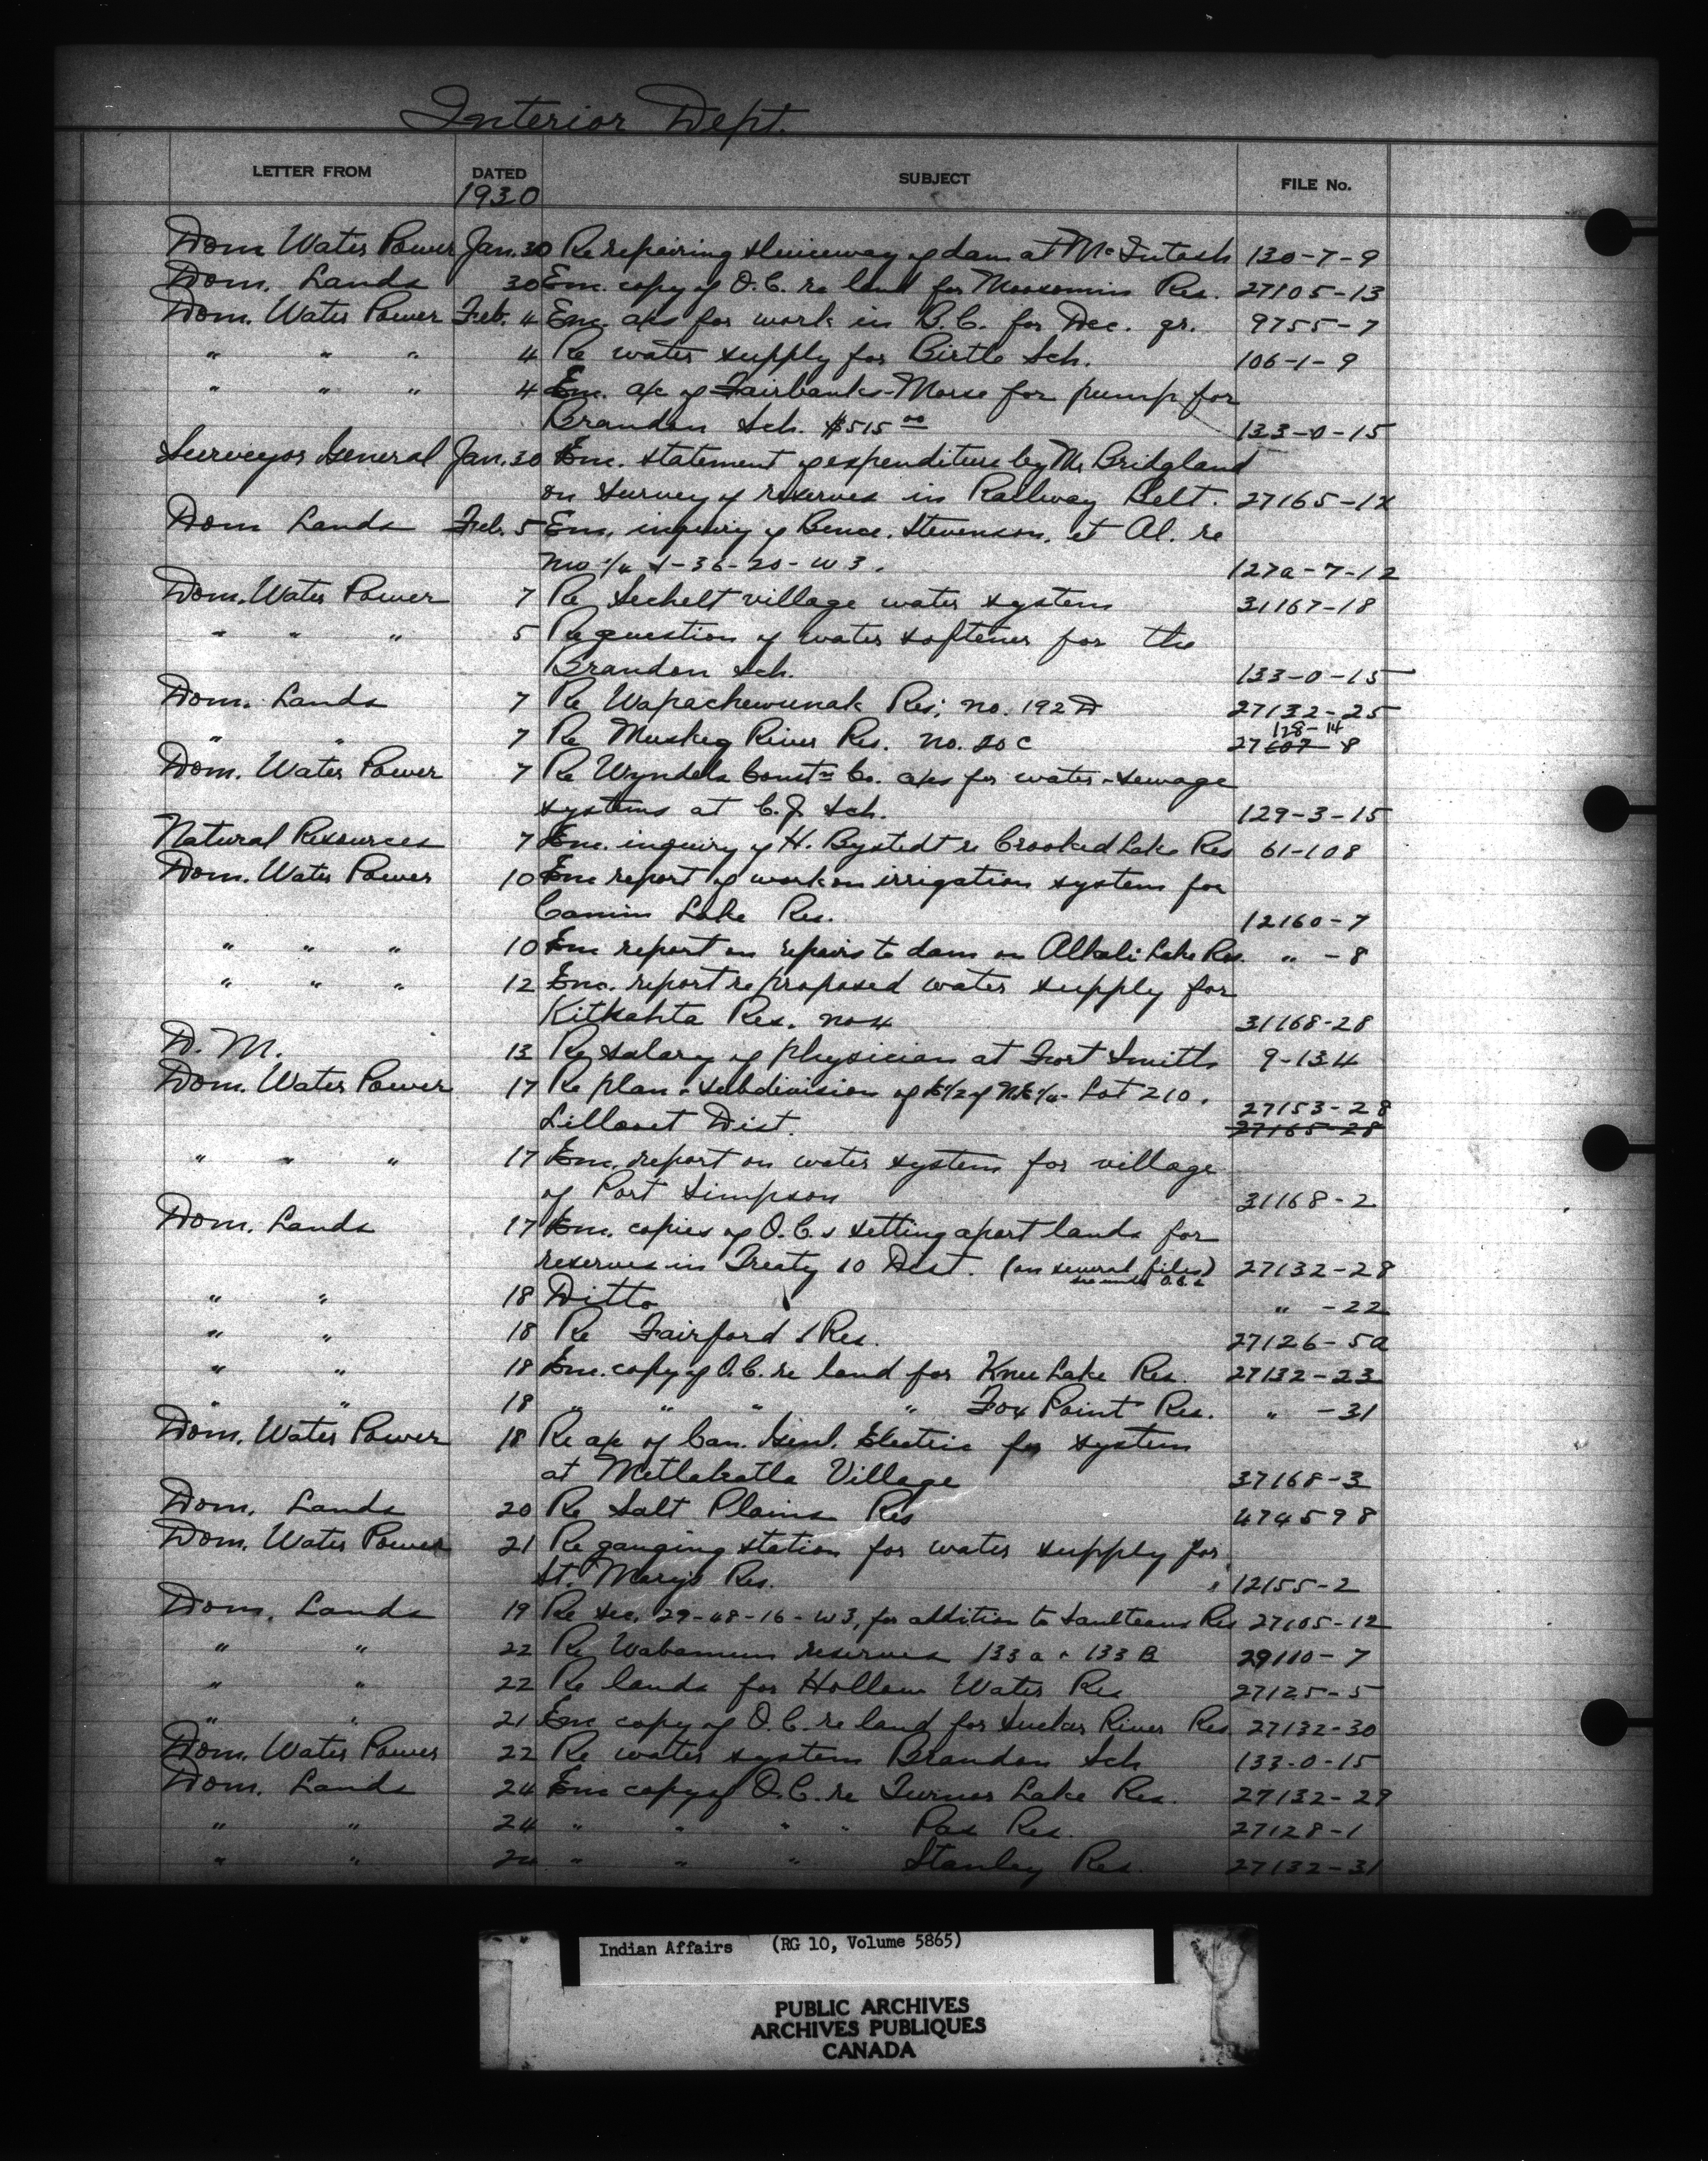 Interior Dept.
LETTER FROM DATED SUBJECT FILE No.
1930
Dom Water Power Jan. 30 Re repairing sluiceway of dam at McIntosh 130-7-9
Dom. Lands 30 Enc. copy of O.C. re land for Moosomin Res. 27105-13
Dom. Water Power Feb. 4 Enc. a/cs for work in B.C. for Dec. qr. 9755-7
" " " 4 Re water supply for Birtle Sch. 106-1-9
" " " 4 Enc. a/c of Fairbanks-Morse for pump for
Brandon Sch. $515 00 133-0-15
Surveyor General Jan. 30 Enc. statement of expenditure by Mr Bridgland
on survey of reserves in Railway Belt. 27165-1
Dom Lands Feb. 5 Enc. inquiry of Bence, Stevenson, et Al. re
36-20-W3. 127a-7-12
Dom. Water Power 7 Re Sechelt village water system 31167-18
" " " 5 Re question of water softener for the
Brandon Sch. 133-0-15
Dom. Lands 7 Re Wapachewunak Res. no. 192 D 27132-25
128-14
" " 7 Re Muskeg River Res. no. 20 C 27607-8
Dom. Water Power 7 Re Wyndels Constn Co. a/cs for water & sewage
systems at C.J. Sch. 129-3-15
Natural Resources 7 Enc. inquiry of H. Bystedt re Crooked Lake Res 61-108
Dom. Water Power 10 Enc report of work on irrigation system for
Canim Lake Res. 12160-7
" " " 10 Enc report on repairs to dam on Alkali Lake Res. " -8
" " " 12 Enc. report re proposed water supply for
Kitkahta Res. no 4 31168-28
D. M. 13 Re salary of physician at Fort Smith 9-134
Dom. Water Power 17 Re plan & subdivision of E1/2 of NE1/4 Lot 210,
27153-28
Lillooet Dist. 27165-28
" " " 17 Enc. report on water system for village
of Port Simpson 31168-2
Dom. Lands 17 Enc. copies of O.C.s setting apart lands for
reserves in Treaty 10 Dist. (on several files) 27132-28
see under O.C.s
" " 18 Ditto " -22
" " 18 Re Fairford Res. 27126-5a
" " 18 Enc. copy of O.C. re land for Knee Lake Res. 27132-23
" " 18 " " " " Fox Point Res. " -31
Dom. Water Power 18 Re a/c of Can. Genl. Electric for system
at Metlakatla Village 37168-3
Dom. Lands 20 Re Salt Plains Res 474598
Dom. Water Power 21 Re gauging station for water supply for
St. Mary's Res. 12155-2
Dom. Lands 19 Re Sec. 29-48-16-W3, for addition to Saulteaux Res 27105-12
" " 22 Re Wabamun reserves 133 a & 133 B 29110-7
" " 22 Re lands for Hollow Water Res 27125-5
" " 21 Enc copy of O.C. re land for Sucker River Res. 27132-30
Dom. Water Power 22 Re water system Brandon Sch 133-0-15
Dom. Lands 24 Enc copy of O.C. re Turnor Lake Res. 27132-29
" " 24 " " " " Pas Res. 27128-1
" " 24 " " " Stanley Res. 27132-31
Indian Affairs (RG 10, Volume 5865)
PUBLIC ARCHIVES
ARCHIVES PUBLIQUES
CANADA